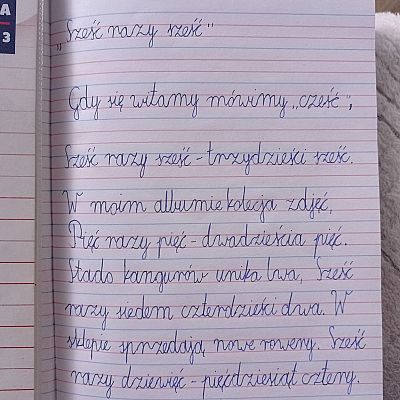 A
3
„Sześć razy sześć"
Gdy się witamy mówimy „cześć",
Sześć razy sześć - trzydzieści sześć.
W moim albumie kolecja zdjęć,
Pięć razy pięć - dwadzieścia pięć.
Stado kangurów unika lwa, Sześć
razy siedem czterdzieści dwa. W
sklepie sprzedają nowe rowery. Sześć
razy dziewięć - pięćdziesiąt cztery.